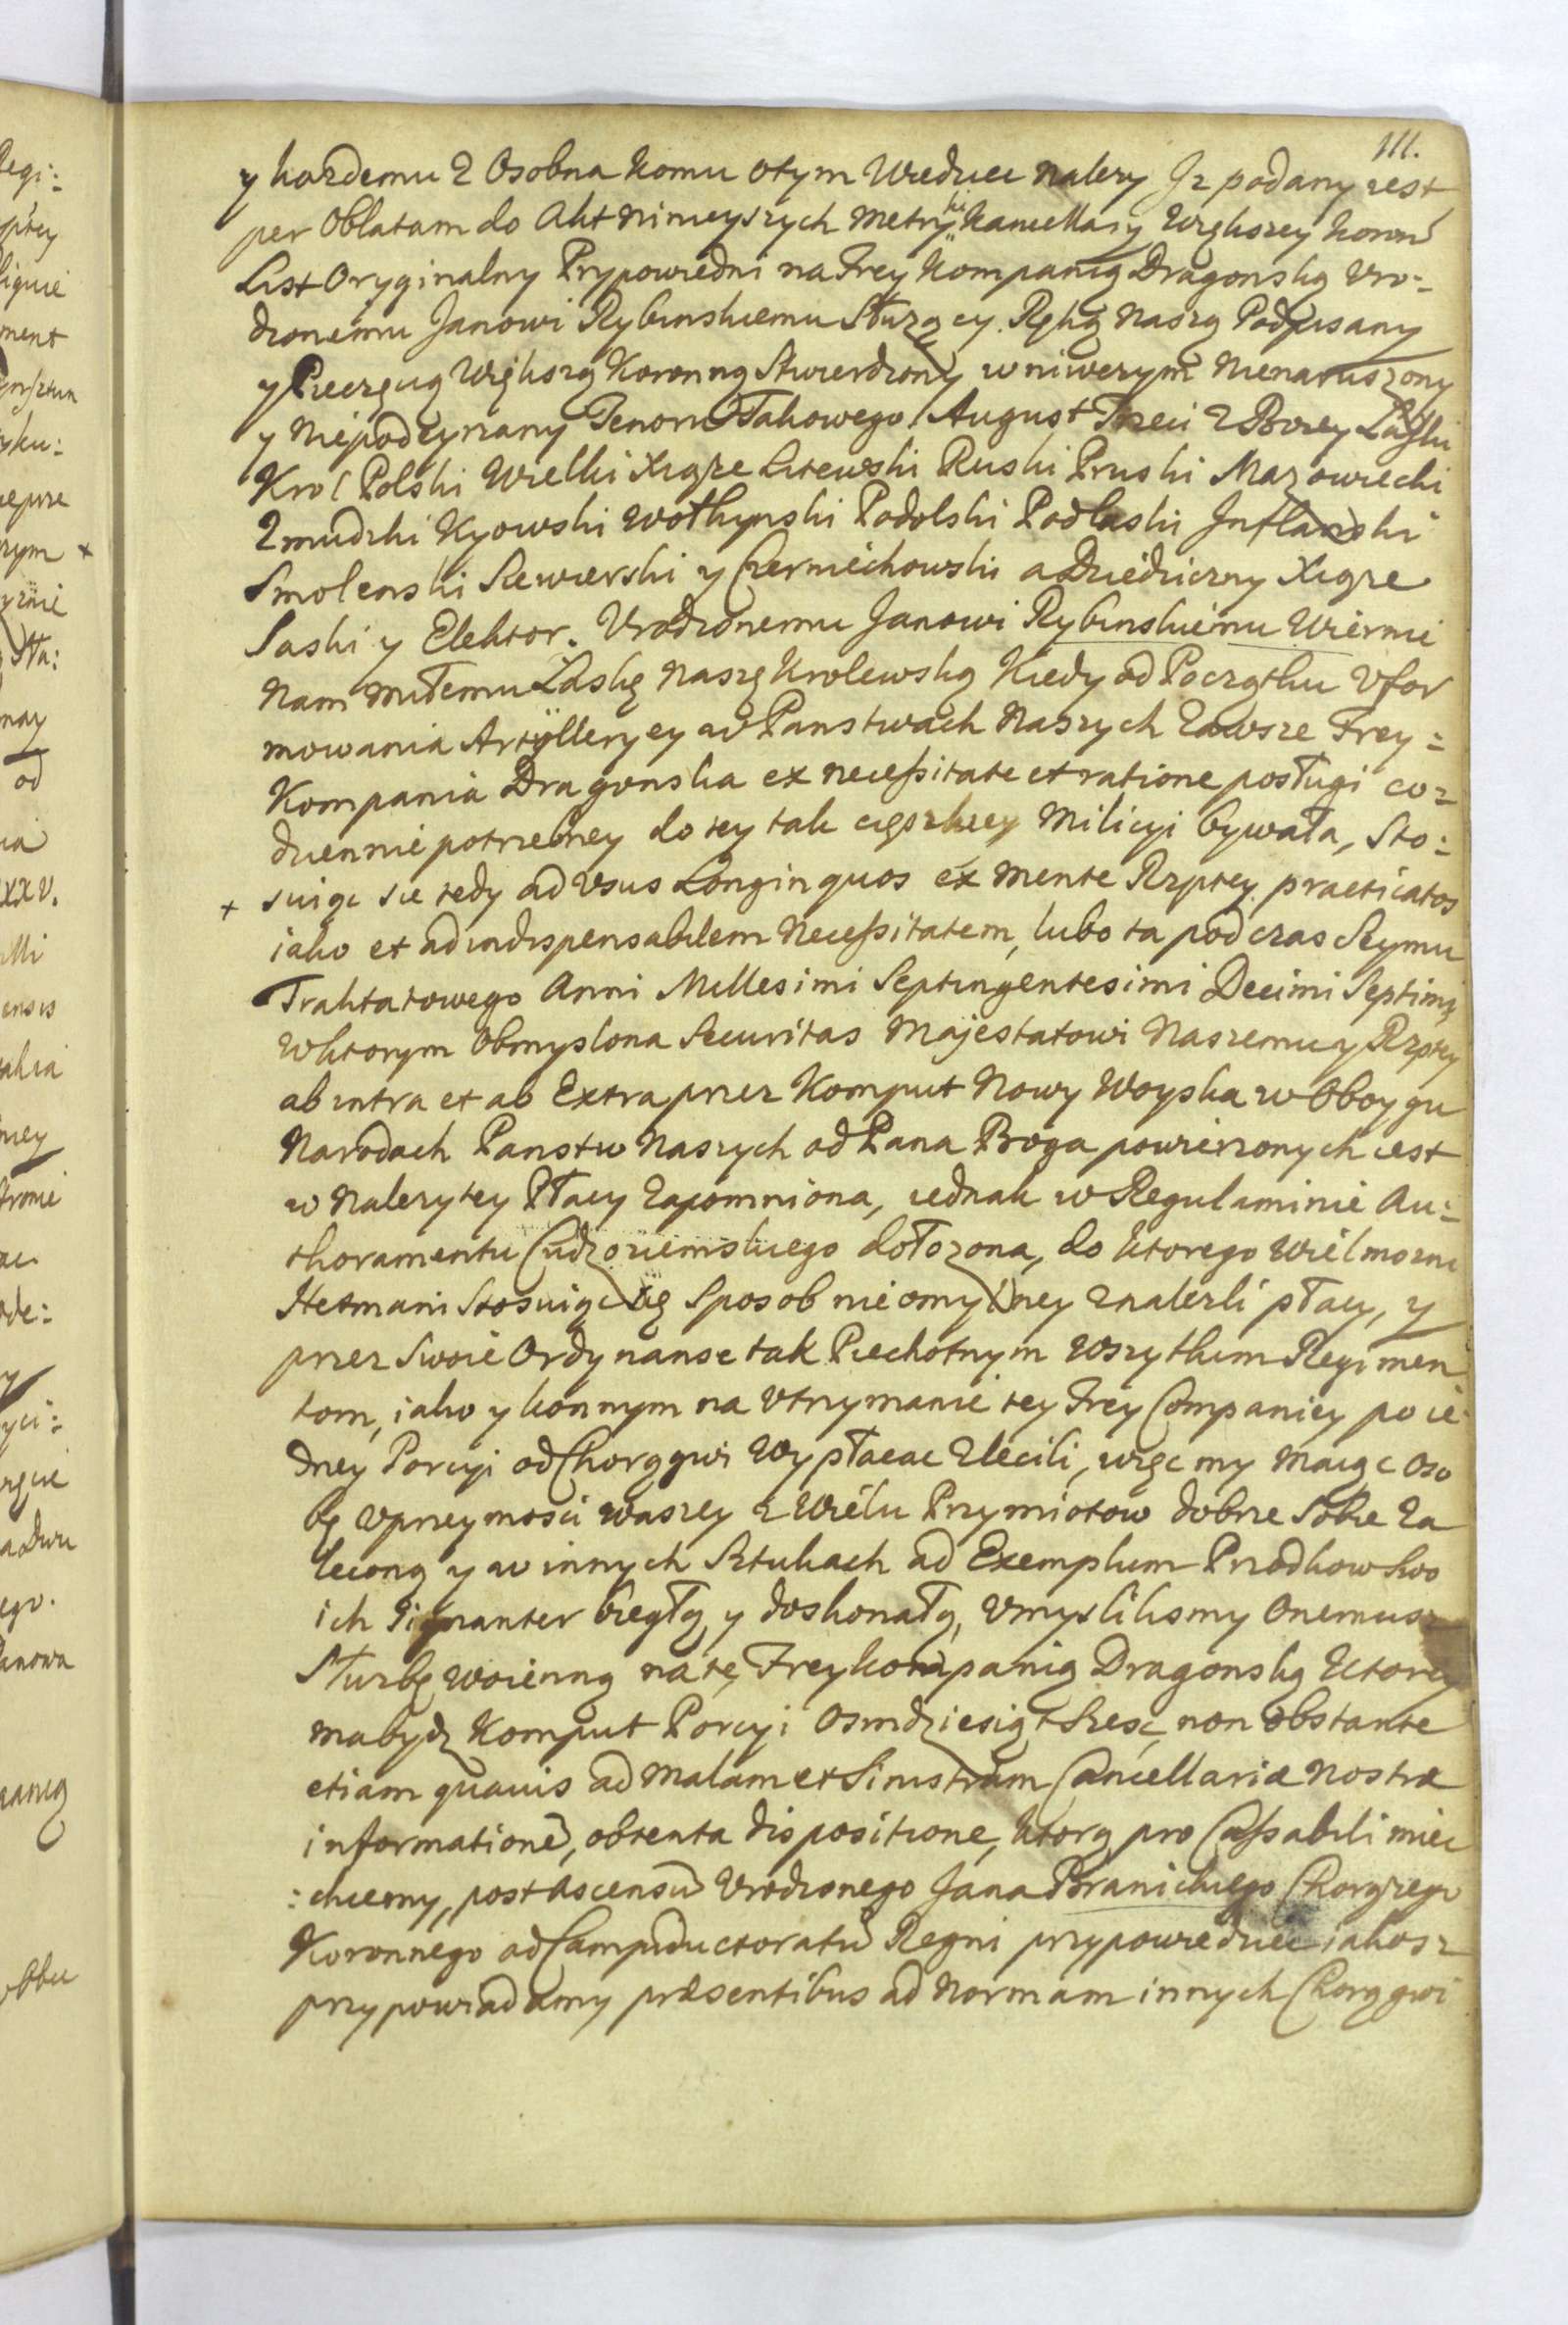 111.
y kazdemu z Osobna komu otym Wiedziec nalezy Jz podany iest
per Oblatam do Akt ninieyszych Metryki Kancellaryi Większey Koron
List Oryginalny Przypowiedni na Frey Kompanią Dragonską Uro=
dzonemu Janowi Rybinskiemu słuzący. Ręką Naszą Podpisany
y Pieczęcią Większą Koronną Stwierdzony w niwczym Nienaruszony
y Niepodeyrzany Tenoru Takowego August Trzeci z Bozey Łaski
Krol Polski Wielki Xiąze Litewski Ruski Pruski Mazowiecki
Zmudzki Kyowski Wołhynski Podolski Podlaski Inflanski
Smolenski Siewierski y Czerniechowski a Dziedziczny Xiąze
Saski y Elektor. Urodzonemu Janowi Rybinskiemu Wiernie
Nam miłemu Łaskę Naszę Krolewską Kiedy od Początku Ufor
mowania Artylleryey w Panstwach Naszych Zawsze Frey=
Kompania Dragonska ex necessitate et ratione posługi co=
dziennie potrzebney do tey tak cięszkiey Milicyi bywała, Sto=
+ suiąc sie tedy ad Usus Longinquos ex mente Rzptey practicatos
iako et ad indispensabilem Necessitatem, lubo ta pod czas Seymu
Traktatowego Anni Millesimi Septingentesimi Decimi Septimi,
w ktorym Obmyslona Securitas Majestatowi Naszemu y Rzptey
ab intra et ab Extra przez Komput Nowy Woyska w Oboygu
Narodach Panstw Naszych od Pana Boga powierzonych iest
w Nalezytey Płacy Zapomniona, iednak w Regulaminie Au=
thoramentu Cudzoziemskiego dołozona, do ktorego Wielmozni
Hetmani Stosuiąc się Sposob nieomylney znalezli płacy, y
przez Swoie Ordynanse tak Piechotnym Wszytkim Regimen
tom, iako y konnym na Utrzymanie tey Frey Companiey po ie
dney Porcyi od Chorągwi Wypłacac Zlecili, więc my Maiąc Oso
bę Uprzeymosci Waszey z Wielu Przymiotow dobrze Sobie Za
leconą y w innych Sztukach ad Exemplum Przodkow Swo
ich Signanter biegłą, y doskonałą, Umyslilismy Onemusz
Słuzbę Woienną na tę Freykompanią Dragonską ktorey
ma bydz Komput Porcyi Osmdziesiąt Szesc, non obstante
etiam quauis ad Malam et Sinistram Cancellariæ Nostræ
informationē, obtenta dispositione, ktorą pro Cassabili miec
:chcemy, post Ascensū Urodzonego Jana Branickiego Chorązego
Koronnego ad Campiductoratū Regni przypowiedziec iakosz
przypowiadamy præsentibus ad Normam innych Chorągwi